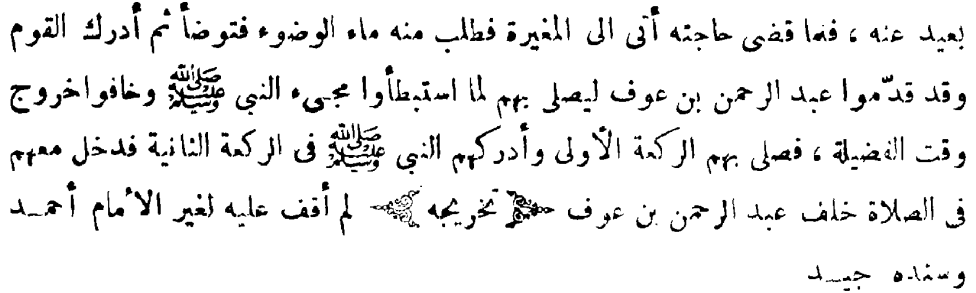 بعيد عنه ، فلما قضى حاجته أتى الى المغيرة فطلب منه ماء الوضوء فتوضأ ثم أدرك القوم
وقد قدّموا عبد الرحمن بن عوف ليصلى بهم لما استبطأوا مجىء النبى ﷺ وخافوا خروج
وقت الفضيلة ، فصلى بهم الركعة الأولى وأدركهم النبي ﷺ فى الركعة الثانية فدخل معهم
فى الصلاة خلف عبد الرحمن بن عوف ﴿ تخريجه ﴾ لم أقف عليه لغير الأمام أحمد
وسنده جيد